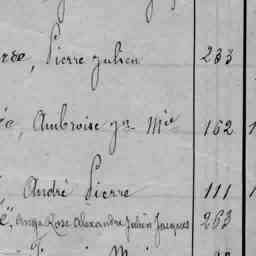 Pierre Julien 233
Ambroise Jn Mie 162
André Pierre 111
Ange Rose Alexandre Julien Jacques 263